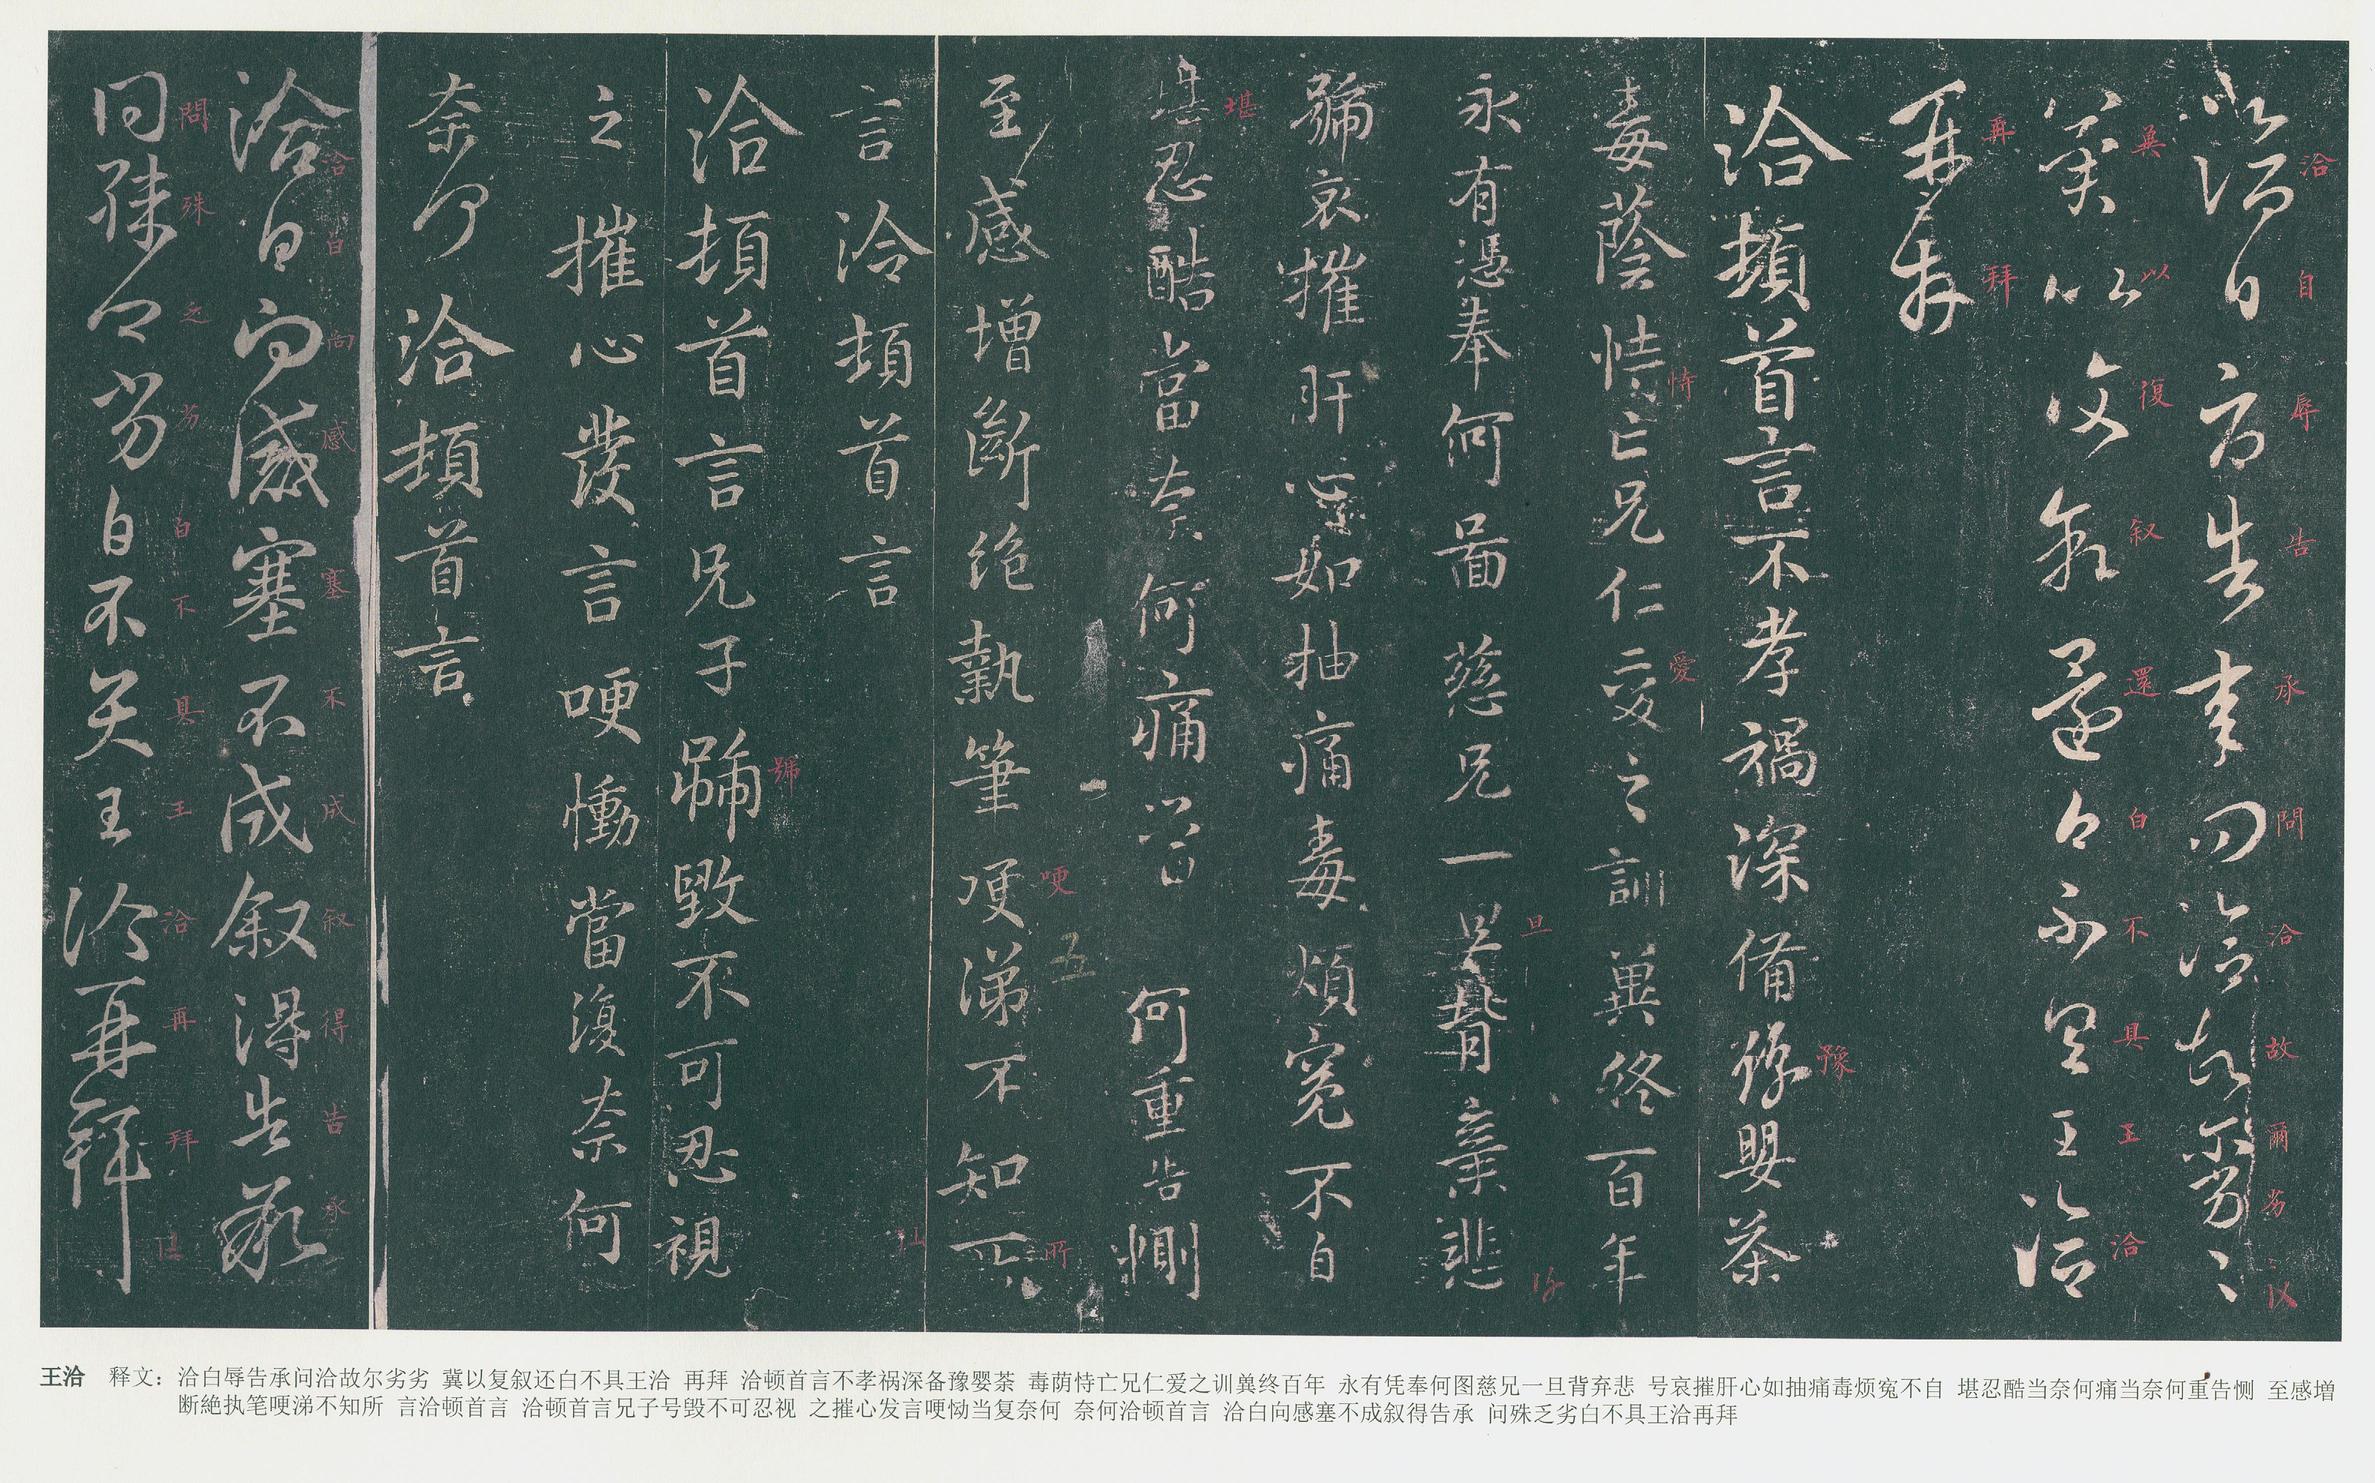 洽白辱告承問洽故爾劣劣
冀以復叙還白不具王洽
再拜
洽頓首言不孝禍深備豫嬰荼
毒蔭恃亡兄仁愛之訓冀終百年
永有憑奉何圖慈兄一旦背棄悲
號哀摧肝心如抽痛毒煩寃不自
堪忍酷當奈何痛當奈何重告惻
至感增斷絶執筆哽涕不知所
言洽頓首言
洽頓首言兄子號毀不可忍視
之摧心發言哽慟當復奈何
奈何洽頓首言
洽白向感塞不成叙得告承
問殊乏劣白不具王洽再拜
洽白辱告承問洽故爾劣
冀以復叙還白不具王洽
再拜
豫
恃愛
旦
堪
哽所
號
洽白向感塞不成叙得告承
問殊乏劣白不具王洽再拜
五
王洽 释文：洽白辱告承问洽故尔劣劣 冀以复叙还白不具王洽 再拜 洽顿首言不孝祸深备豫婴荼 毒荫恃亡兄仁爱之训冀终百年 永有凭奉何图慈兄一旦背弃悲 号哀摧肝心如抽痛毒烦寃不自 堪忍酷当奈何痛当奈何重告恻 至感增
断絶执笔哽涕不知所 言洽顿首言 洽顿首言兄子号毁不可忍视 之摧心发言哽恸当复奈何 奈何洽顿首言 洽白向感塞不成叙得告承 问殊乏劣白不具王洽再拜